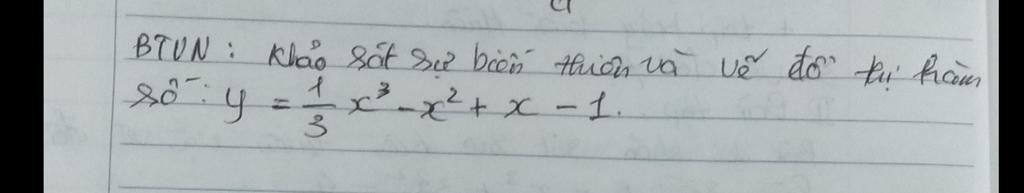 BTVN: Khảo sát sự biến thiên và vẽ đồ thị hàm
số: y = 1/3 x³ - x² + x - 1.